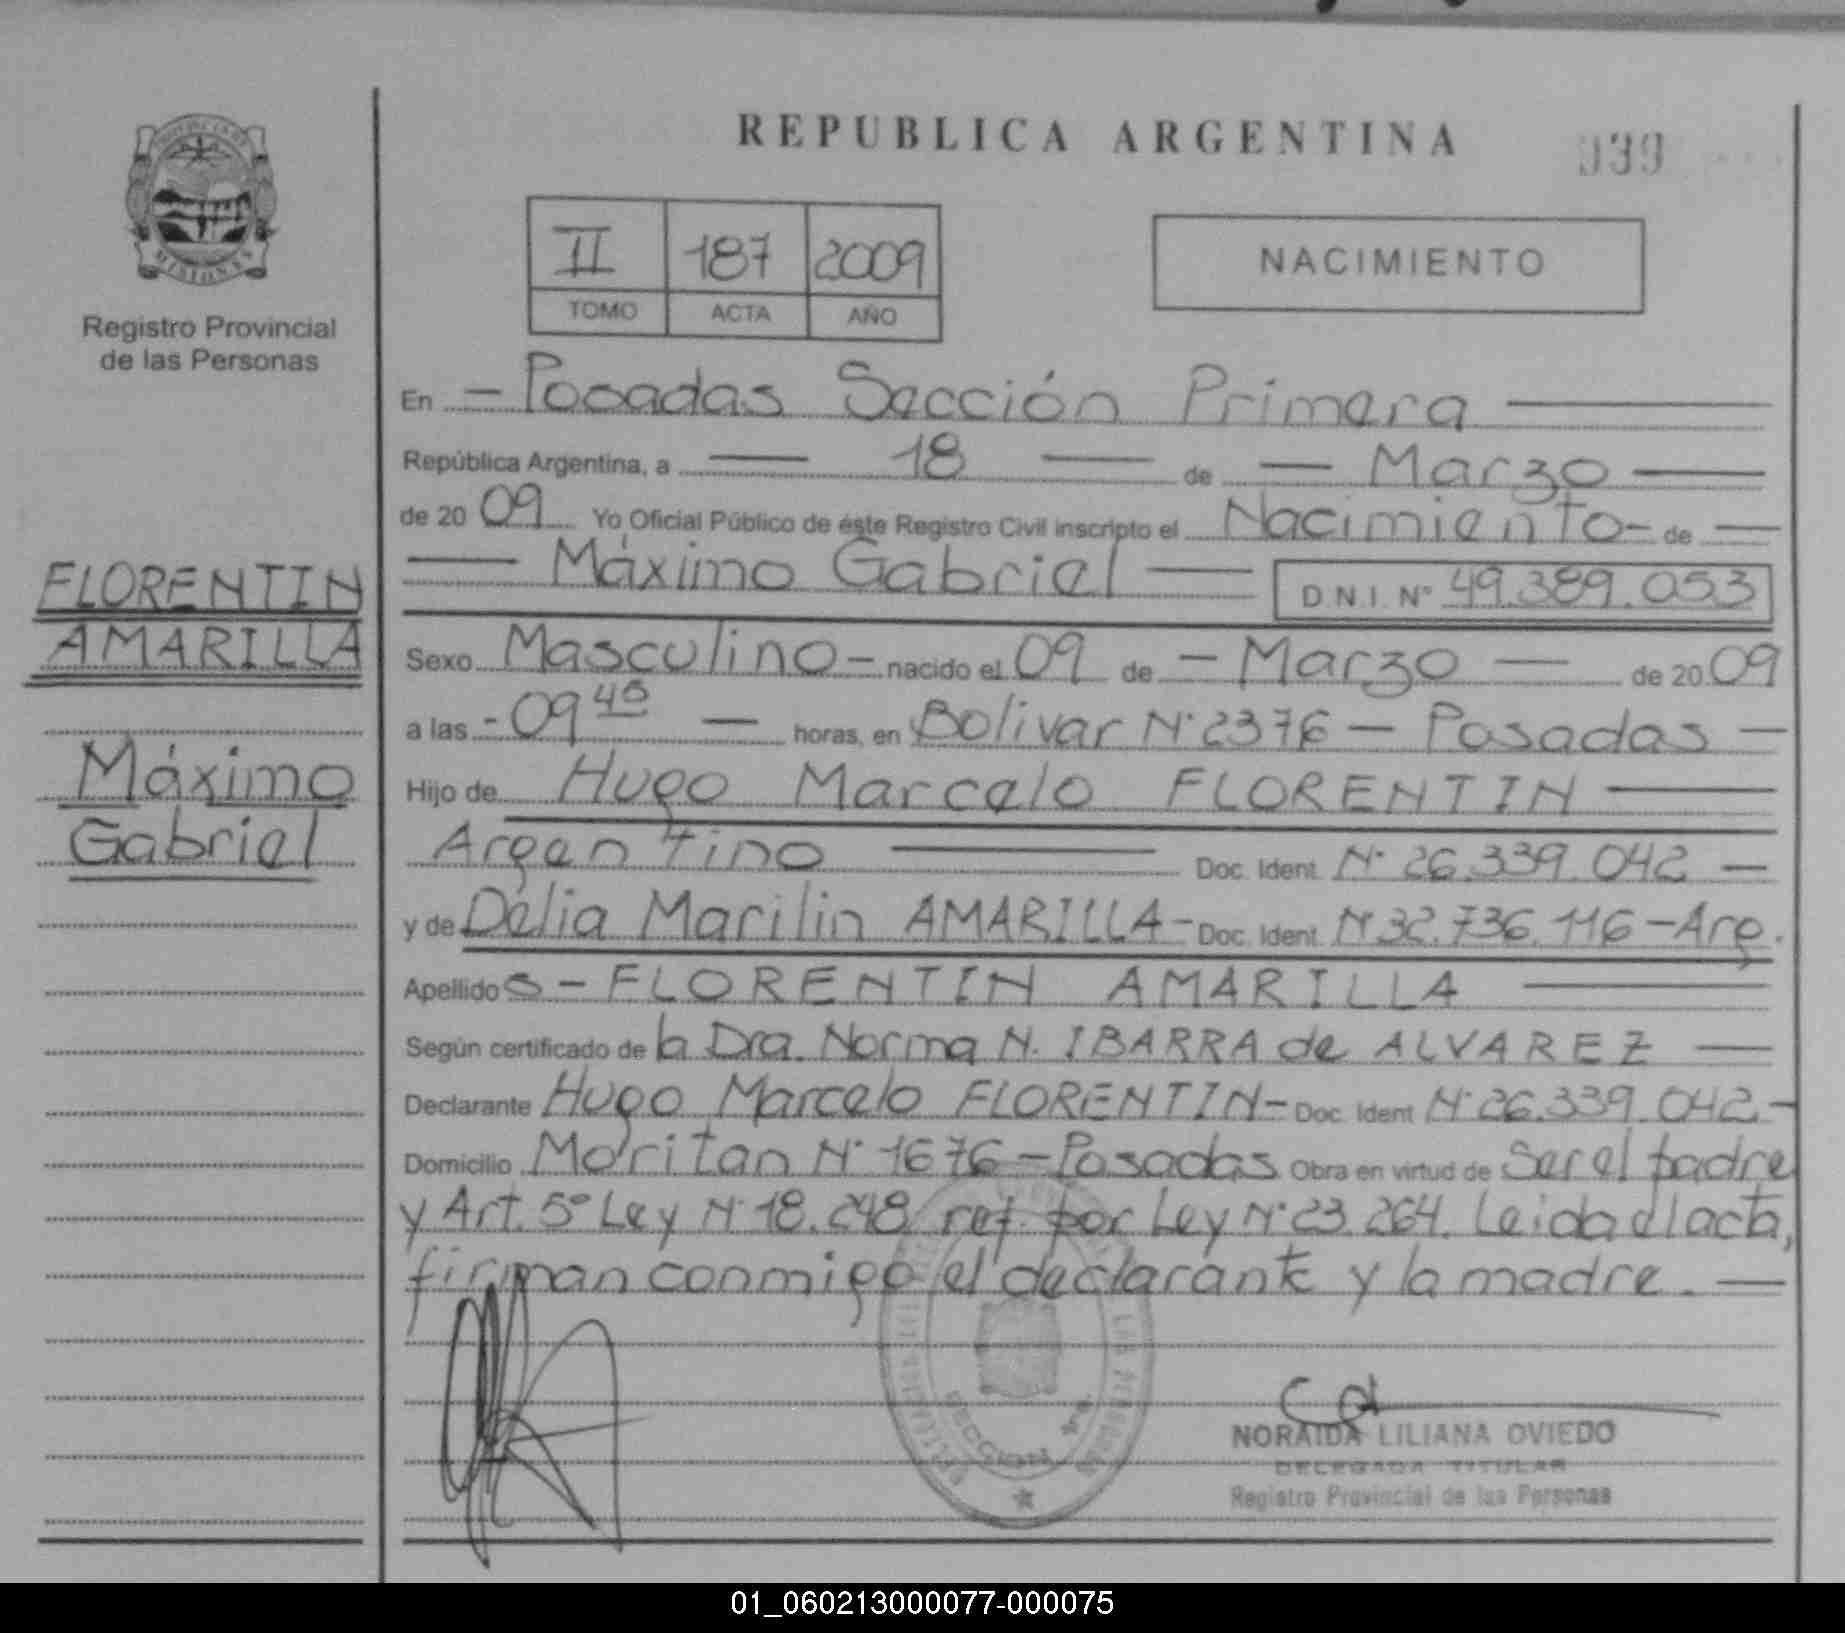 REPUBLICA ARGENTINA
939
PROVINCIA DE
MISIONES
Registro Provincial
de las Personas
II 187 2009
TOMO ACTA AÑO
NACIMIENTO
En - Posadas Sección Primera
República Argentina, a 18 de - Marzo
de 20 09 Yo Oficial Público de éste Registro Civil inscripto el Nacimiento - de
Máximo Gabriel D.N.I. N° 49.389.053
FLORENTIN
AMARILLA
Máximo
Gabriel
Sexo Masculino - nacido el 09 de - Marzo - de 20 09
a las - 09 45 - horas, en Bolivar N° 2376 - Posadas -
Hijo de Hugo Marcelo FLORENTIN
Argentino Doc. Ident. N° 26.339.042 -
y de Delia Marilin AMARILLA - Doc. Ident. N° 32.736.116 - Arg.
Apellido s - FLORENTIN AMARILLA
Según certificado de la Dra. Norma N. IBARRA de ALVAREZ
Declarante Hugo Marcelo FLORENTIN - Doc. Ident N° 26.339.042 -
Domicilio Moritan N° 1676 - Posadas Obra en virtud de Ser el padre
y Art. 5° Ley N° 18.248 ref. por Ley N° 23.264. Leida el acta,
firman conmigo el declarante y la madre.
SECCION 1ra.
NORAIDA LILIANA OVIEDO
DELEGADA TITULAR
Registro Provincial de las Personas
01_060213000077-000075